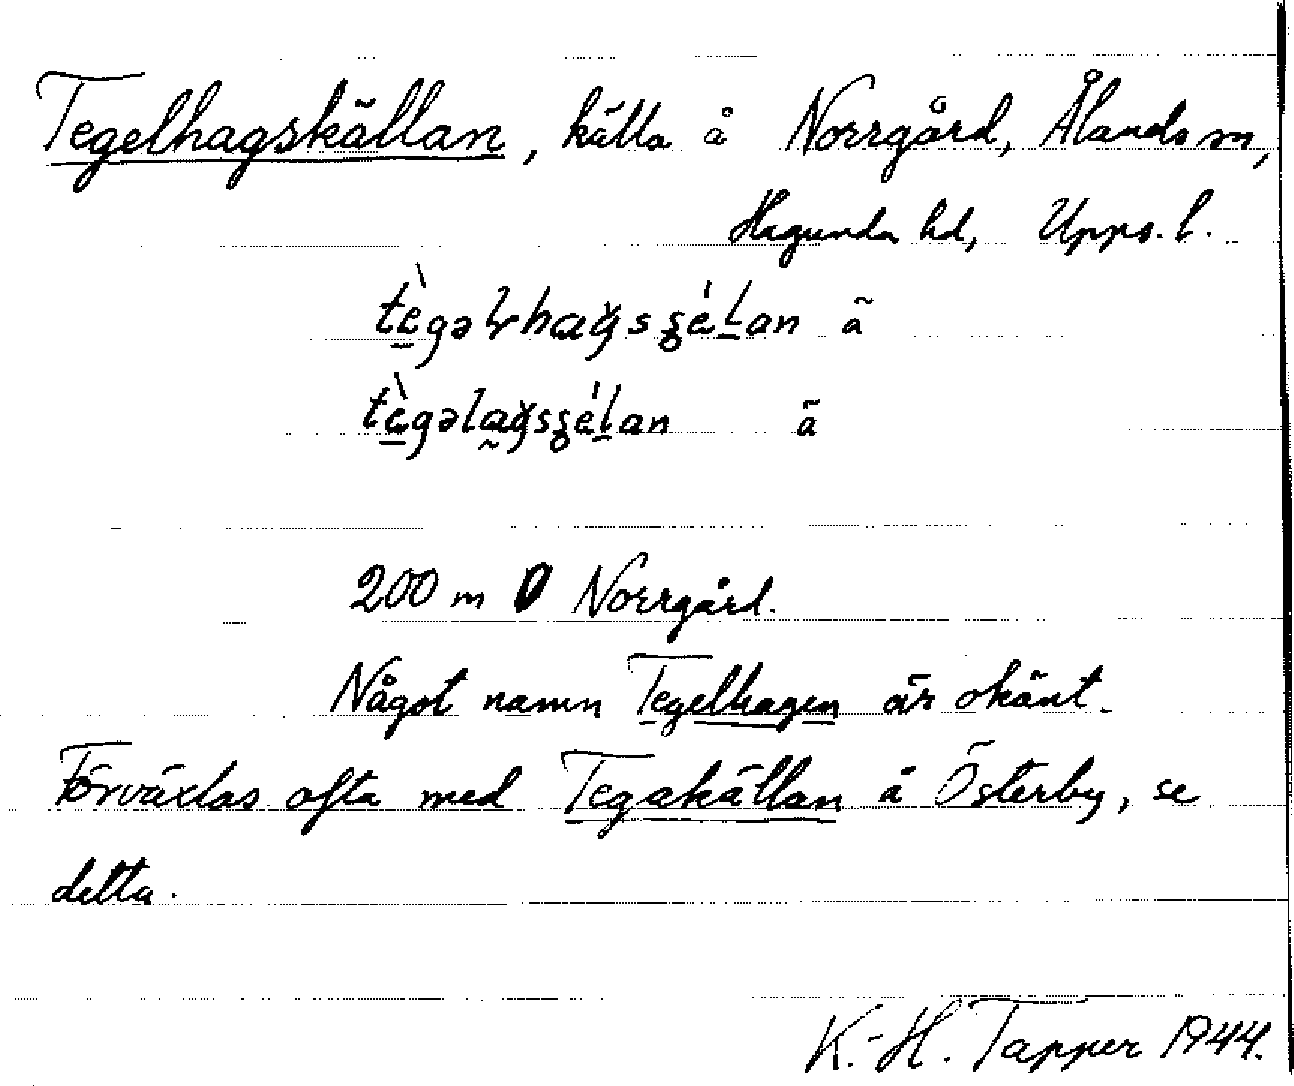 Tegelhagskällan, källa å Norrgård, Ålands sn,
Hagunda hd, Upps. l.
tè̱gəlrhaɡ̆sʂé̱ḻan ã
tè̱gəla̰ɡ̆sʂéḻan ã
200 m O Norrgård.
Något namn Tegelhagen är okänt.
Förväxlas ofta med Tegakällan å Österby, se
detta.
K.-H. Tapper 1944.